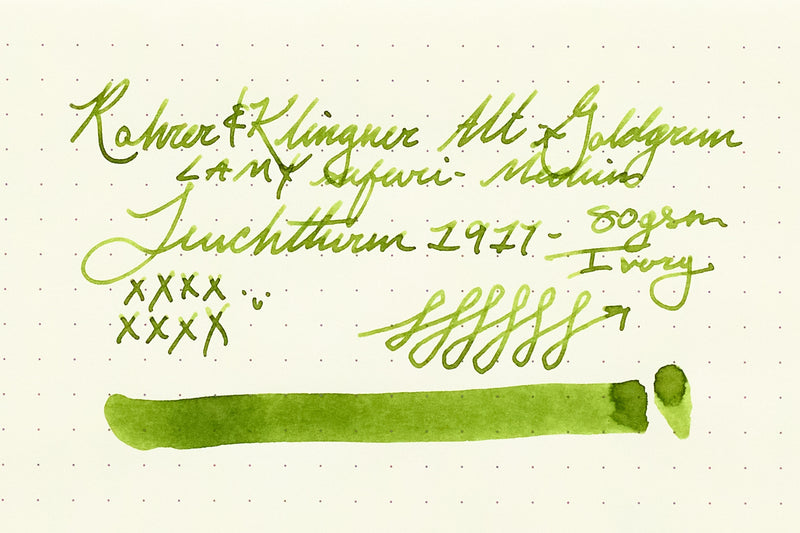 Rohrer & Klingner Alt x Goldgrun
LAMY Safari - Medium
Leuchtturm 1917 - 80gsm
Ivory
xxxx
xxxx